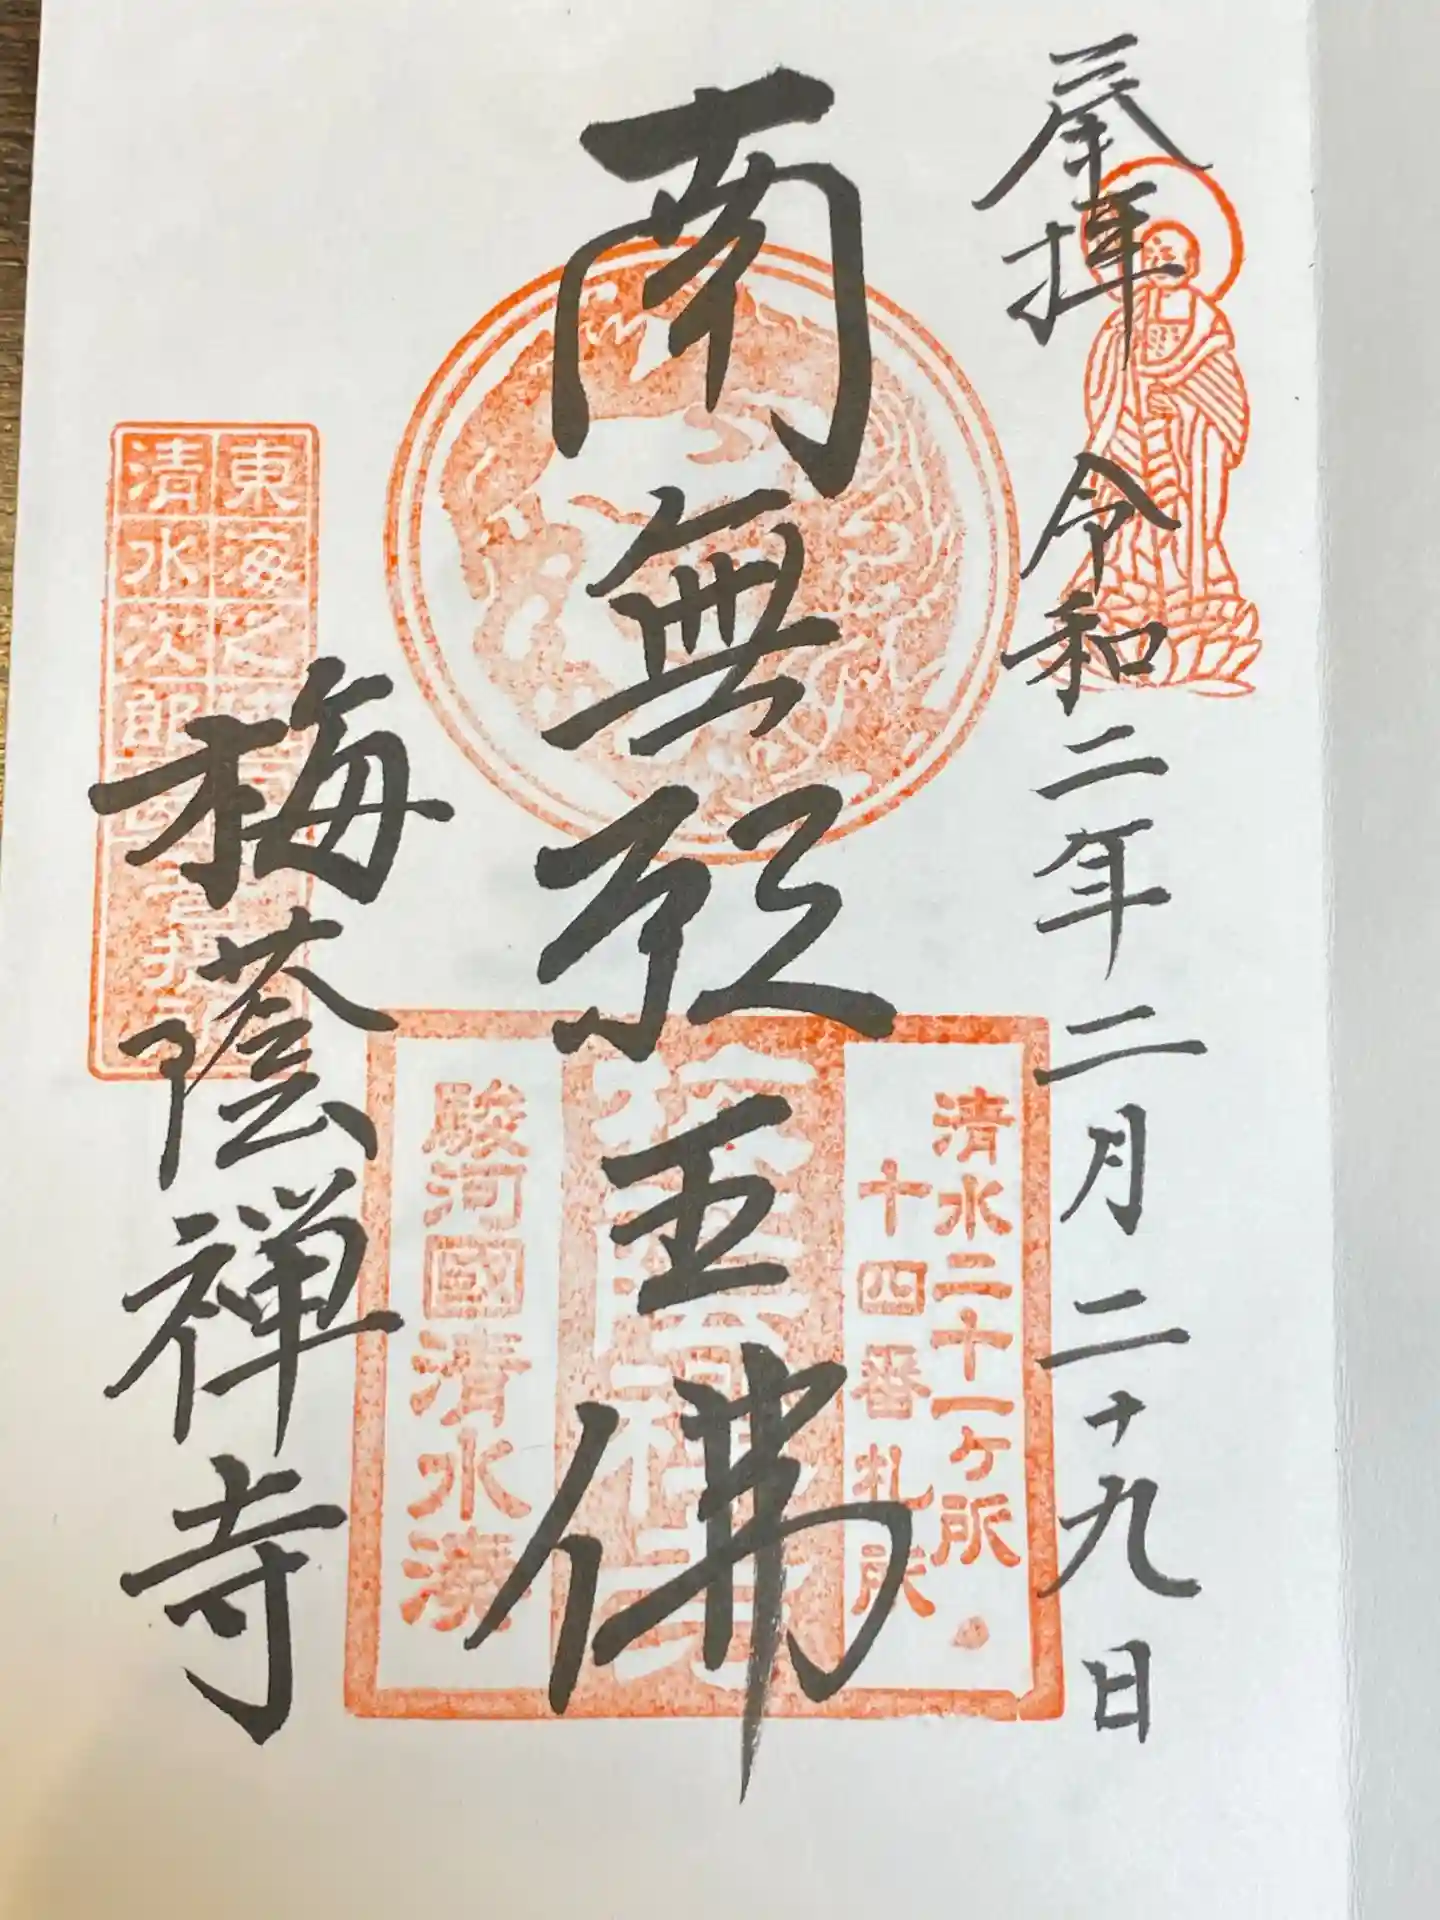 奉拝 令和二年二月二十九日
南無願王佛
梅蔭禅寺
清水二十一ヶ所
十四番札所
駿河國清水湊
東海之
清水次郎